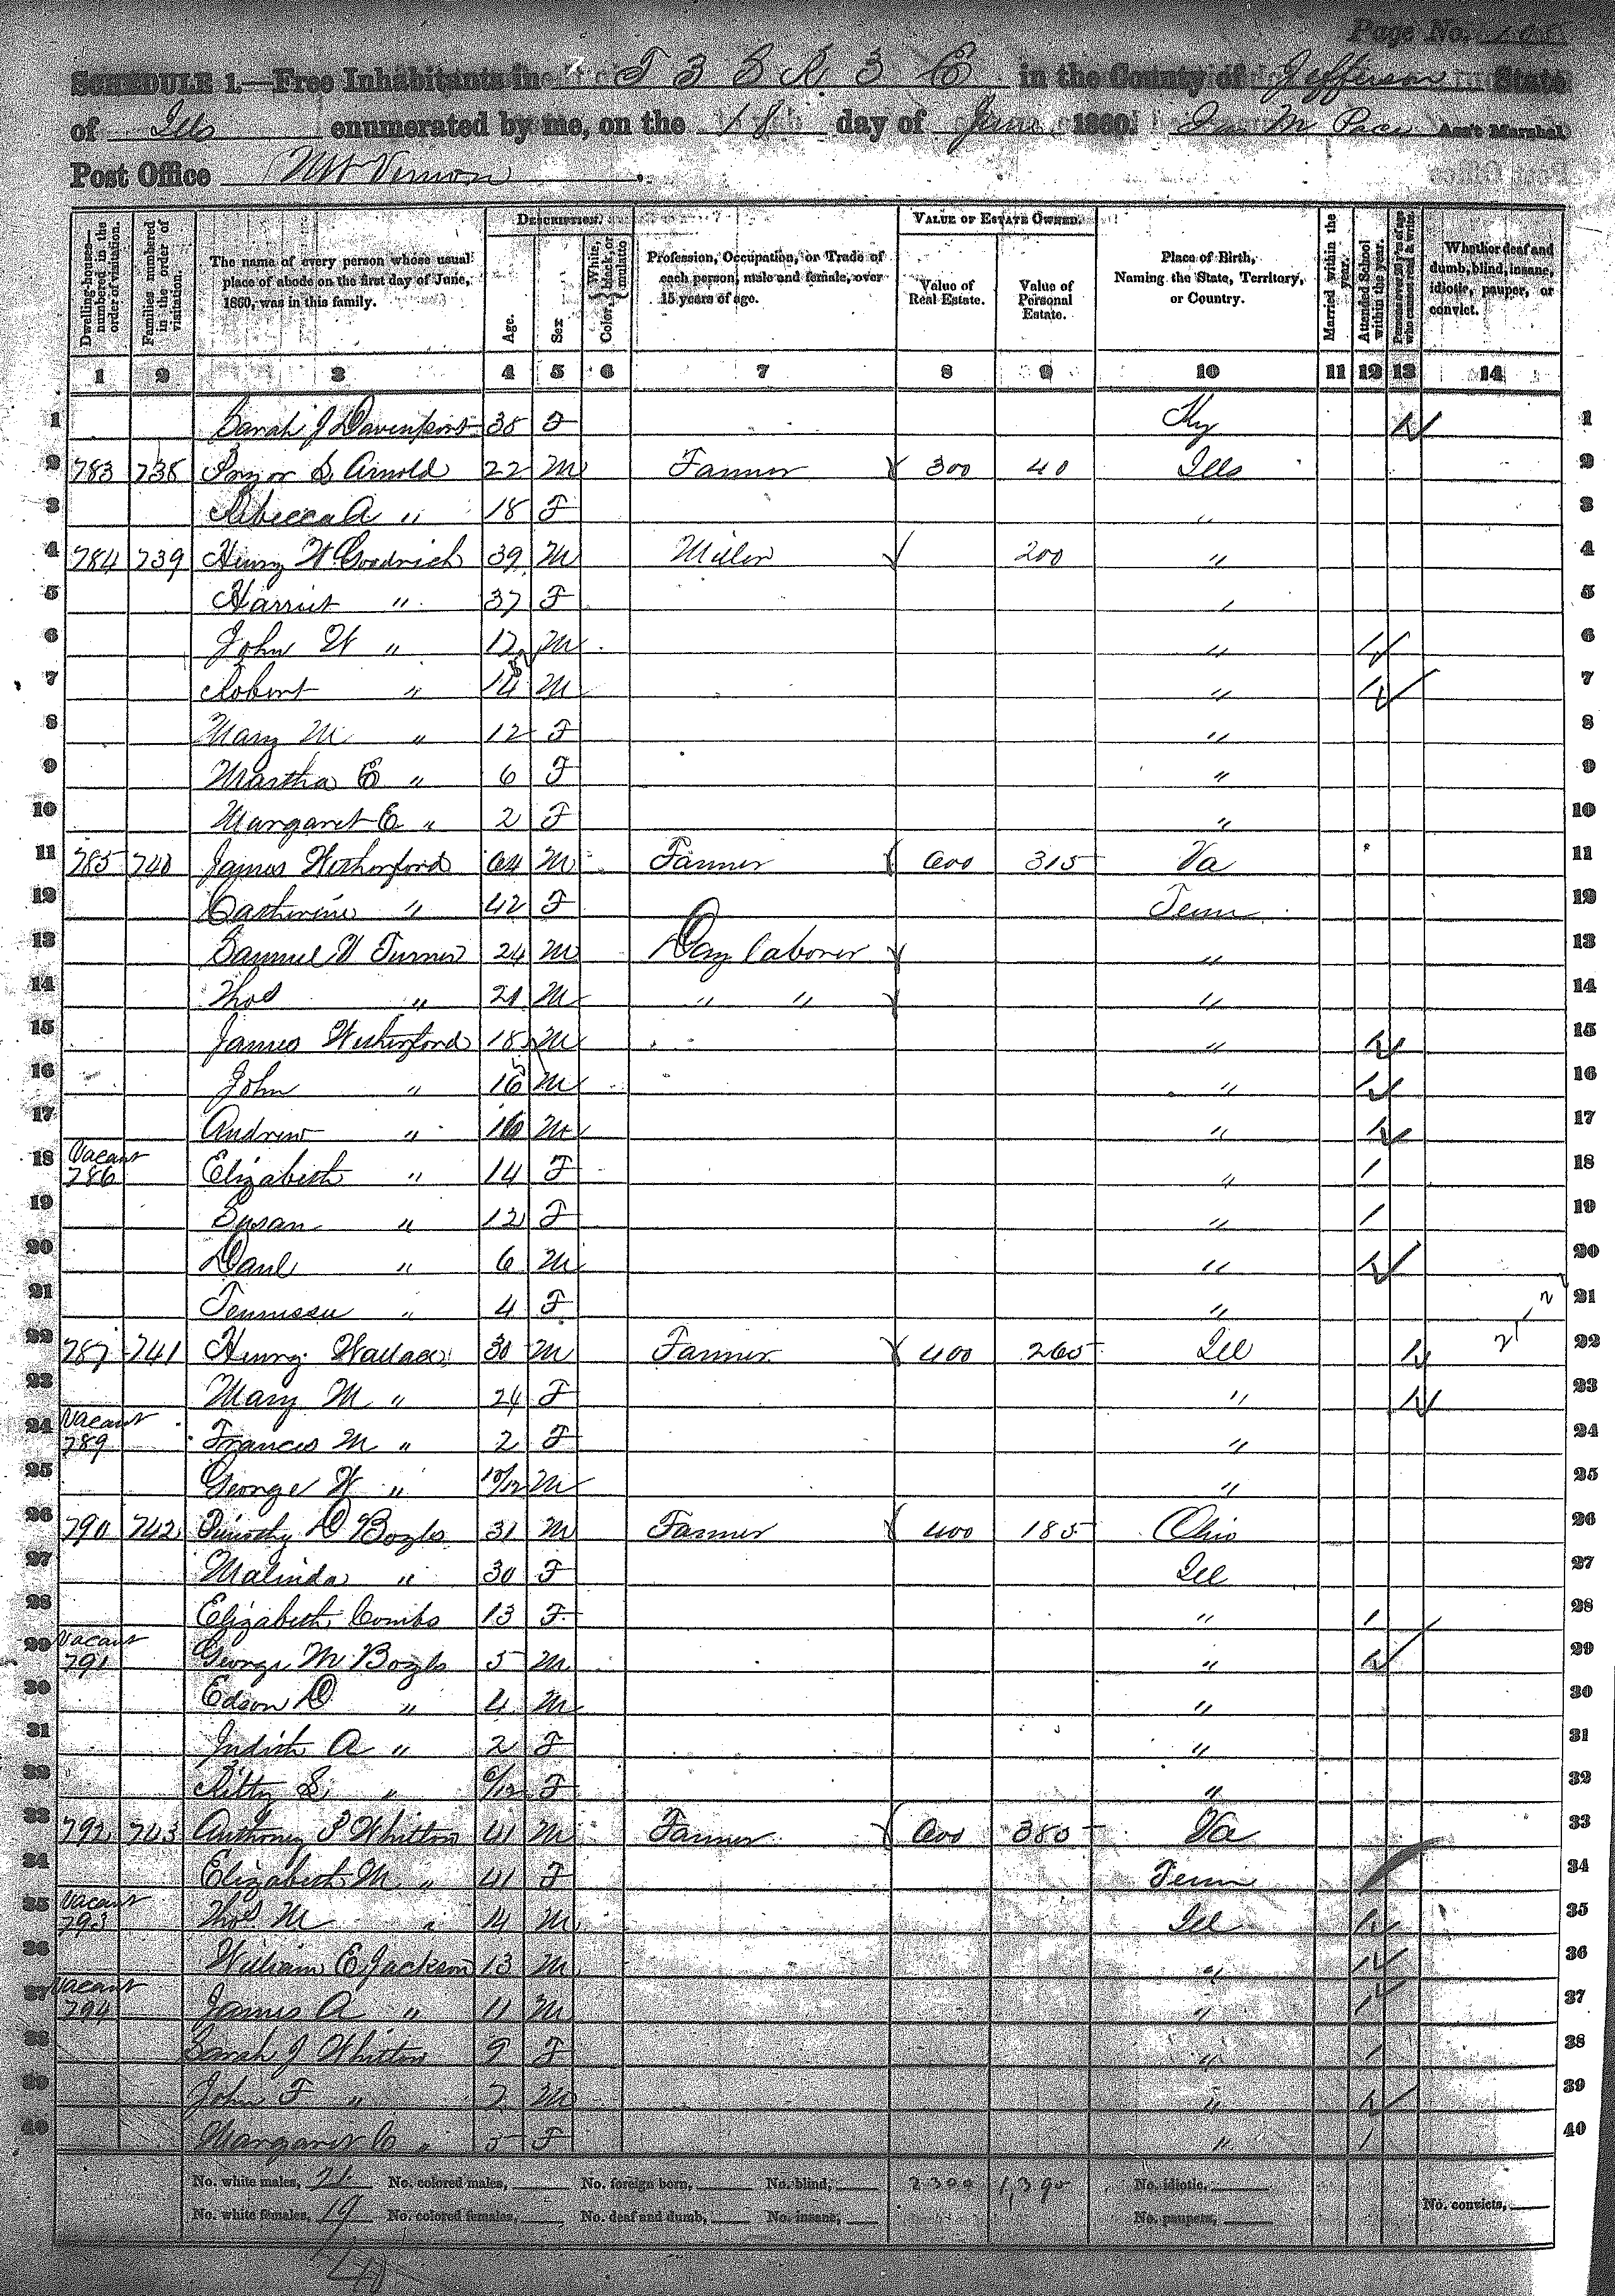 Page No. 108
SCHEDULE 1.—Free Inhabitants in T 3 S R 3 E in the County of Jefferson State
of Ills enumerated by me, on the 18 day of June 1860. M Pace Ass't Marshal
Post Office Mt Vernon
Dwelling-houses—numbered in the order of visitation. Families numbered in the order of visitation. The name of every person whose usual place of abode on the first day of June, 1860, was in this family. DESCRIPTION. Age. Sex Color, White, black, or mulatto Profession, Occupation, or Trade of each person, male and female, over 15 years of age. VALUE OF ESTATE OWNED. Value of Real Estate. Value of Personal Estate. Place of Birth, Naming the State, Territory, or Country. Married within the year. Attended School within the year. Persons over 20 y'rs of age who cannot read & write. Whether deaf and dumb, blind, insane, idiotic, pauper, or convict.
1 2 3 4 5 6 7 8 9 10 11 12 13 14
1 Sarah J Davenport 38 F Ky 1 1
2 783 738 Pryor L Arnold 22 M Farmer 300 40 Ills 2
3 Rebecca A " 18 F " 3
4 784 739 Henry W Goodrich 39 M Miller 200 " 4
5 Harriet " 37 F " 5
6 John W " 17 M " 1 6
7 Robert " 14 M " 1 7
8 Mary M " 12 F " 8
9 Martha E " 6 F " 9
10 Margaret E " 2 F " 10
11 785 740 James Wetherford 64 M Farmer 600 315 Va 11
12 Catherine " 42 F Tenn 12
13 Samuel Turner 24 M Day laborer " 13
14 Thos " 21 M " " " 14
15 James Wetherford 18 M " 1 15
16 John " 16 M " 1 16
17 Andrew " 16 M " 1 17
18 Vacant 786 Elizabeth " 14 F " 1 18
19 Susan " 12 F " 1 19
20 Danl " 6 M " 1 20
21 Tennissee " 4 F " 21
22 787 741 Henry Wallace 30 M Farmer 400 265 Ill 1 22
23 Mary M " 24 F " 1 23
24 Vacant 789 Frances M " 2 F " 24
25 George W " 10/12 M " 25
26 790 742 Timothy D Bogls 31 M Farmer 400 185 Ohio 26
27 Malinda " 30 F Ill 27
28 Elizabeth Combs 13 F " 1 28
29 Vacant 791 George M Bogls 5 M " 1 29
30 Edson D " 4 M " 30
31 Judith A " 2 F " 31
32 Kitty S " 6/12 F " 32
33 792 743 Anthony P Whitton 41 M Farmer 600 385 Va 33
34 Elizabeth M " 41 F Tenn 34
35 Vacant 793 Thos M " 14 M Ill 1 35
36 William E Jackson 13 M " 1 36
37 Vacant 794 James A " 11 M " 1 37
38 Sarah J Whitton 9 F " 1 38
39 John F " 7 M " 1 39
40 Margaret C " 5 F " 1 40
No. white males, 21 No. colored males, No. foreign born, No. blind, 2300 1,390 No. idiotic,
No. white females, 19 No. colored females, No. deaf and dumb, No. insane, No. paupers, No. convicts,
40